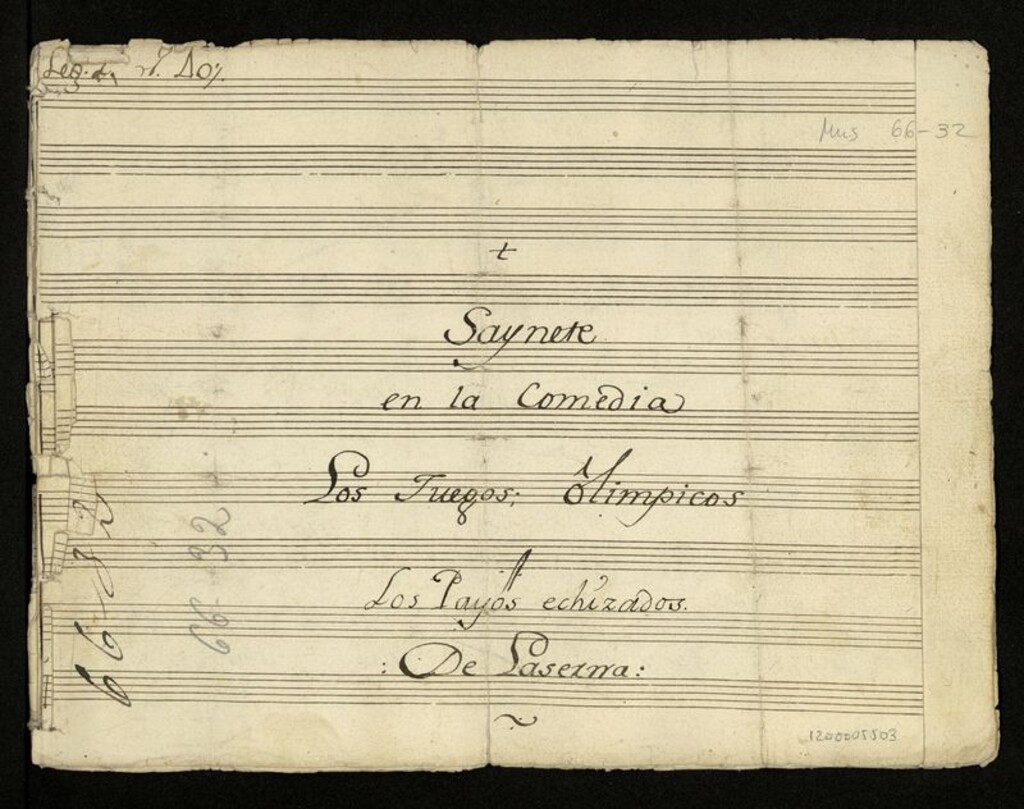 Leg. nº. 40%.
Mus 66-32
+
Saynete
en la Comedia
Los Juegos; Olimpicos
Los Payos echizados.
:De Laserna:
66-32
66-32
1200005503